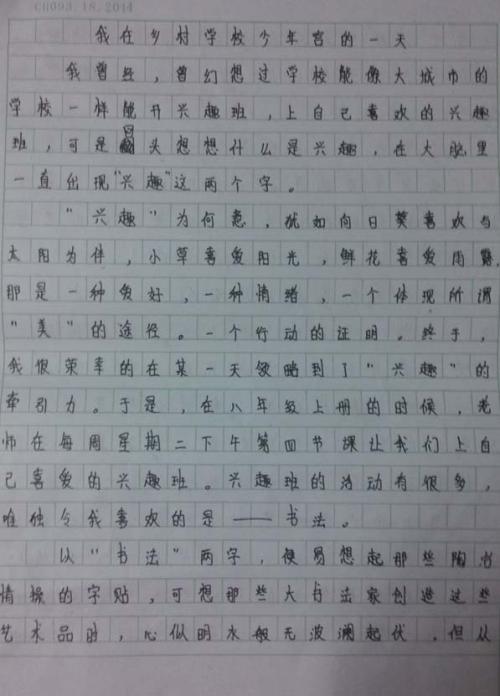 CH093.18.2014
我在乡村学校少年宫的一天
我曾经，曾幻想过学校能像大城市的
学校一样能开兴趣班，上自己喜欢的兴趣
班，可是回头想想什么是兴趣，在大脑里
一直出现“兴趣”这两个字。
“兴趣”为何意，犹如向日葵喜欢与
太阳为伴，小草喜爱阳光，鲜花喜爱雨露．
那是一种爱好，一种情绪，一个体现所谓
“美”的途径。一个行动的证明。终于，
我很荣幸的在某一天领略到了“兴趣”的
牵引力。于是，在八年级上册的时候，老
师在每周星期二下午第四节课让我们上自
己喜爱的兴趣班。兴趣班的活动有很多，
唯独令我喜欢的是——书法。
以“书法”两字，便易想起那些陶冶
情操的字贴，可想那些大书法家创造这些
艺术品时，心似明水般无波澜起伏．但从